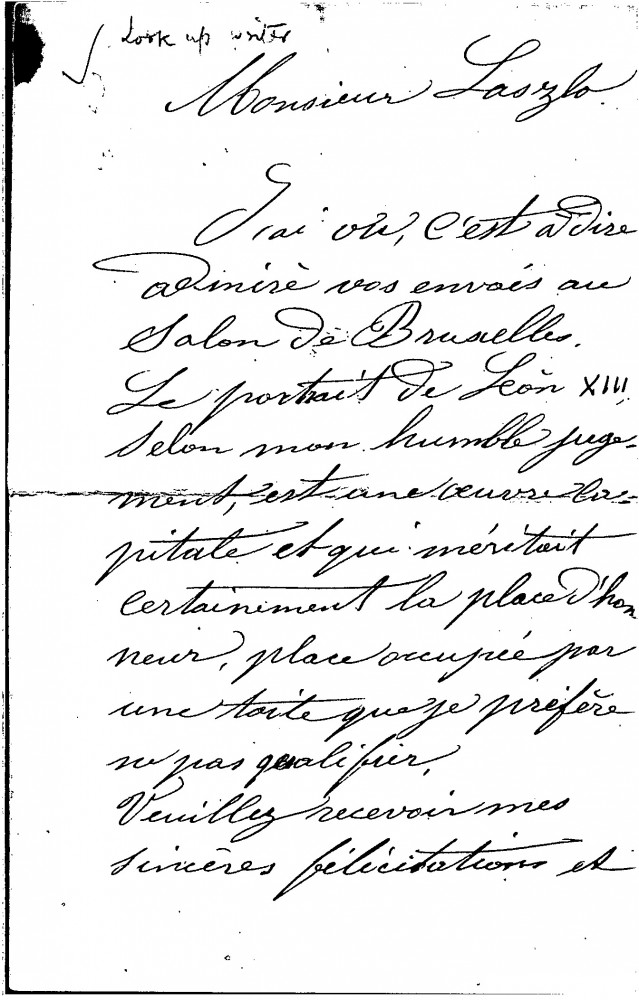 Look up writer
Monsieur Laszlo.
J'ai vu, c'est à dire
admiré vos envois au
Salon de Bruxelles.
Le portrait de Léon XIII,
selon mon humble juge-
ment, est une œuvre ca-
pitale et qui méritait
certainement la place d'hon
neur, place occupée par
une toile que je préfère
ne pas qualifier.
Veuillez recevoir mes
sincères félicitations et